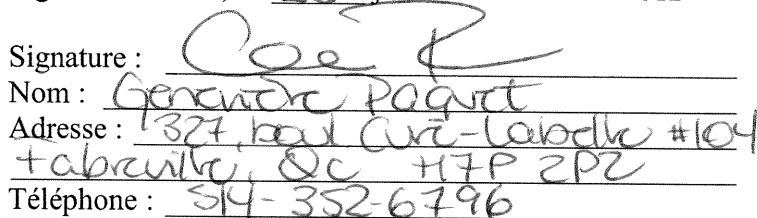 Signature :
Nom : Geneviève Paquet
Adresse : 1327, boul Curé-Labelle #104
Fabreville, Qc H7P 2P2
Téléphone : 514-352-6796